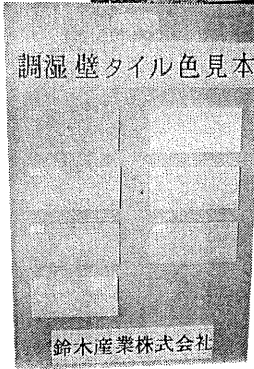 調湿壁タイル色見本
鈴木産業株式会社